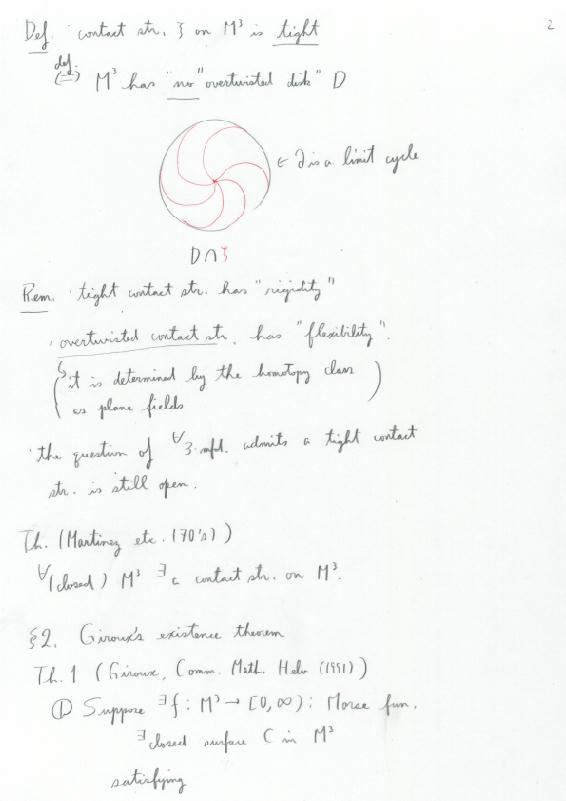 2
Def. contact str. ξ on M³ is tight
def. (⇔) M³ has "no" "overtwisted disk" D
← ∂ is a limit cycle
D∩ξ
Rem. · tight contact str. has "rigidity"
· overtwisted contact str. has "flexibility".
↳ (it is determined by the homotopy class
as plane fields)
· the question of ∀3-mfd. admits a tight contact
str. is still open.
Th. (Martinez etc. (70's))
∀(closed) M³ ∃ a contact str. on M³.
§2. Giroux's existence theorem
Th. 1 (Giroux, Comm. Math. Helv (1991))
① Suppose ∃f : M³ → [0, ∞) ; Morse fun.
∃closed surface C in M³
satisfying